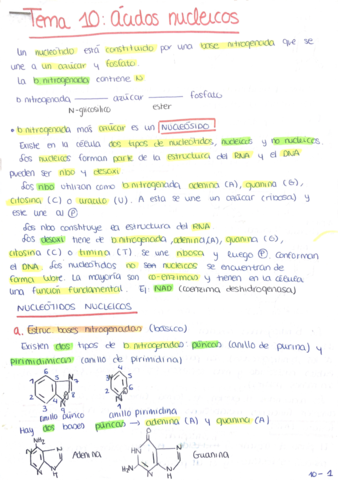 Tema 10: Ácidos nucleicos
Un nucleótido está constituido por una base nitrogenada que se
une a un azúcar y fosfato.
La b nitrogenada contiene N
b nitrogenada azúcar fosfato
N-glicosídico ester
• b nitrogenada más azúcar es un NUCLEÓSIDO
Existe en la célula dos tipos de nucleótidos, nucleicos y no nucleicos.
Los nucleicos forman parte de la estructura del RNA y el DNA
pueden ser ribo y desoxi
Los ribo utilizan como b nitrogenada, adenina (A), guanina (G),
citosina (C) o uracilo (U). A esta se une un azúcar (ribosa) y
este une al P
Los ribo constituye la estructura del RNA.
Los desoxi tiene de b nitrogenada, adenina (A), guanina (G),
citosina (C) o timina (T). se une ribosa y luego P. conforman
el DNA. Los nucleótidos no son nucleicos se encuentran de
forma libre. La mayoría son co-enzimas y tienen en la célula
una función fundamental. Ej: NAD (coenzima deshidrogenasa)
NUCLEÓTIDOS NUCLEICOS
a. Estruc bases nitrogenadas (básico)
Existen dos tipos de b nitrogenada: púricas (anillo de purina) y
pirimidimicas (anillo de pirimidina)
anillo púrico anillo pirimidina
Hay dos bases púricas → adenina (A) y guanina (A)
NH2 Adenina
O HN H2N Guanina
10-1